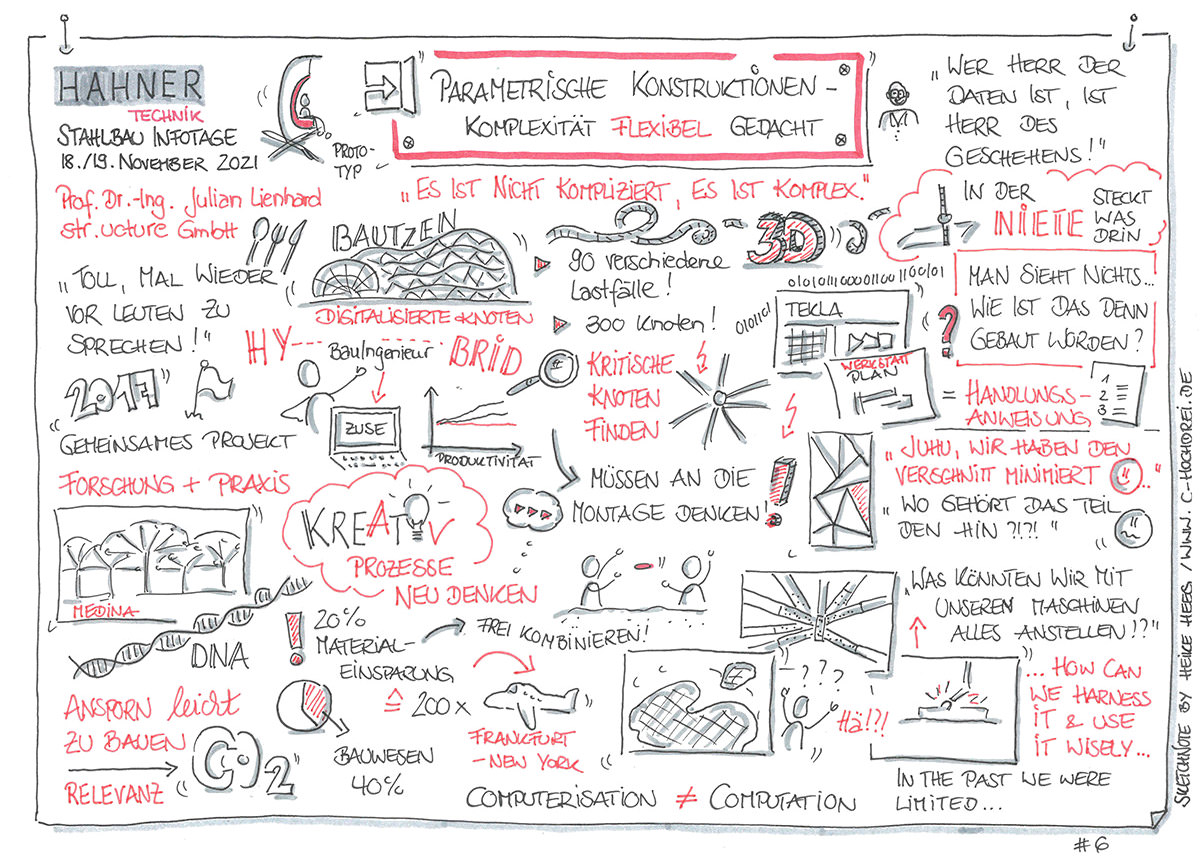 HAHNER
TECHNIK
STAHLBAU INFOTAGE
18./19. NOVEMBER 2021
Prof. Dr.-Ing. Julian Lienhard
str.ucture GmbH
PROTO-
TYP
PARAMETRISCHE KONSTRUKTIONEN -
KOMPLEXITÄT FLEXIBEL GEDACHT
„ES IST NICHT KOMPLIZIERT, ES IST KOMPLEX."
„WER HERR DER
DATEN IST, IST
HERR DES
GESCHEHENS!"
IN DER
NIETE
STECKT
WAS
DRIN
„TOLL, MAL WIEDER
VOR LEUTEN ZU
SPRECHEN!"
BAUTZEN
DIGITALISIERTE KNOTEN
3D
90 verschiedene
Lastfälle!
300 Knoten!
01010111000011001100101
0101101
TEKLA
WERKSTATT
PLAN
?
MAN SIEHT NICHTS...
WIE IST DAS DENN
GEBAUT WORDEN?
= HANDLUNGS-
ANWEISUNG
1
2
3
HY---BRID
Bauingenieur
ZUSE
PRODUKTIVITÄT
KRITISCHE
KNOTEN
FINDEN
2017
GEMEINSAMES PROJEKT
FORSCHUNG + PRAXIS
MÜSSEN AN DIE
MONTAGE DENKEN!
!
„JUHU, WIR HABEN DEN
VERSCHNITT MINIMIERT ..."
„WO GEHÖRT DAS TEIL
DEN HIN ?!?!"
KREATIV
PROZESSE
NEU DENKEN
MEDINA
DNA
!
20%
MATERIAL-
EINSPARUNG
FREI KOMBINIEREN!
≙ 200 x
FRANKFURT
-NEW YORK
„WAS KÖNNTEN WIR MIT
UNSEREN MASCHINEN
ALLES ANSTELLEN!?"
???
Hä!?!
... HOW CAN
WE HARNESS
IT & USE
IT WISELY...
IN THE PAST WE WERE
LIMITED...
ANSPORN leicht
ZU BAUEN
RELEVANZ
CO2
BAUWESEN
40%
COMPUTERISATION ≠ COMPUTATION
SKETCHNOTE BY HEIKE HEBS / WWW.C-HOCHDREI.DE
#6